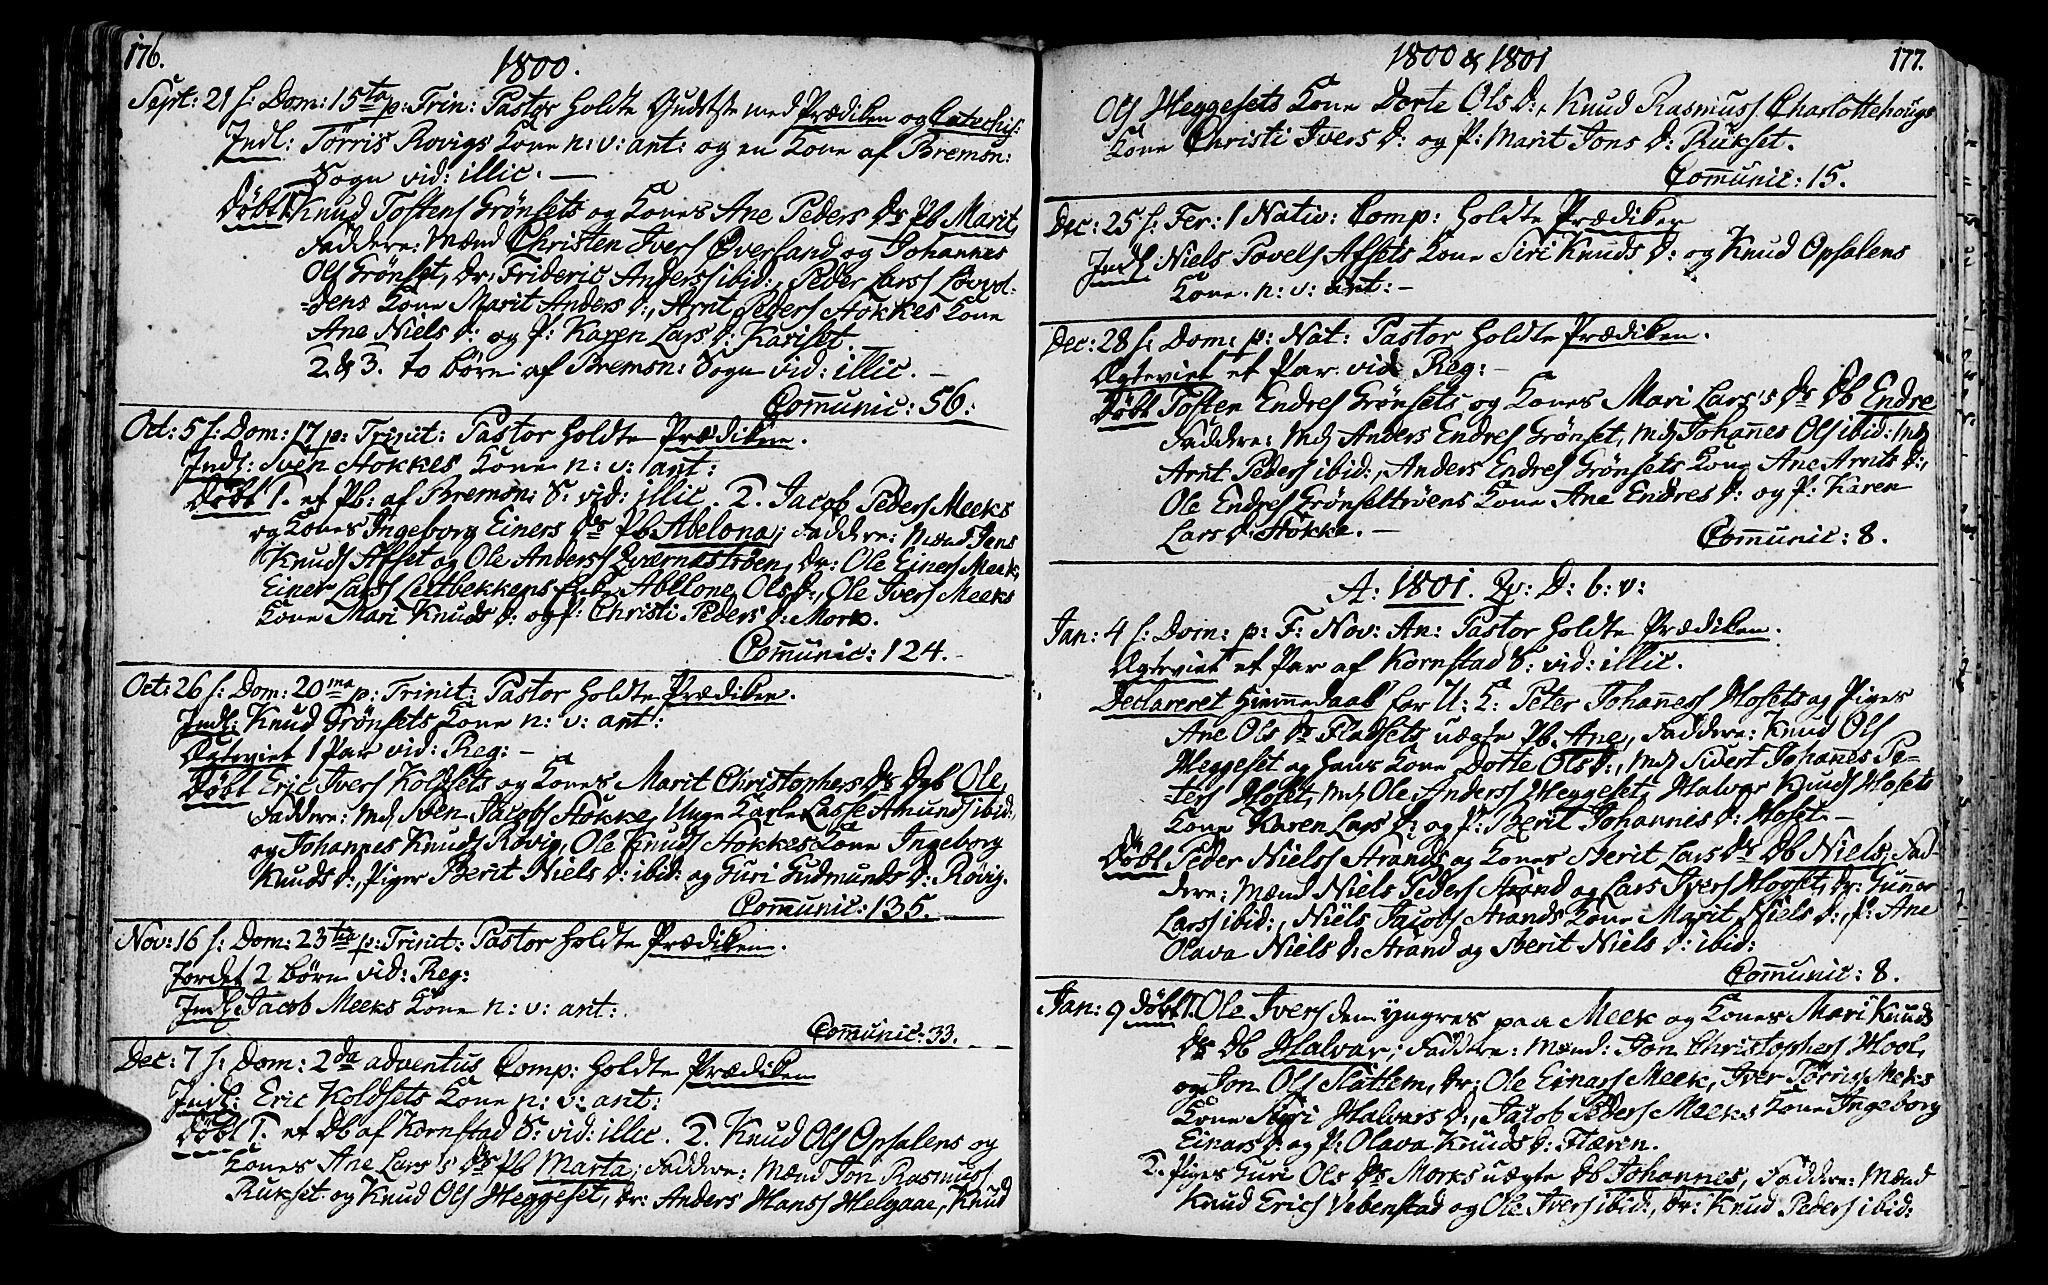 176.
1800.
Sept: 21 s: Dom: 15ta p: Trin: Pastor holdte Gudstste med Prædiken og Catechis:
Indl: Törris Rovigs Kone n: v: ant: og en Kone af Bremsn:
Sogn vid: illic. —
Döbt 1. Knud Tostens Grönsets og Kones Ane Peders Dr Pb Marit,
Faddere: Mænd Christen Ivers Överland og Johannes
Ols Grönset, Dr: Frideric Anders ibid:, Peder Lars Lövvol-
dens Kone Marit Anders D:, Arnt Peders Stokkes Kone
Ane Niels D: og P: Karen Lars D: Kariset.
2 & 3. to börn af Bremsn: Sogn vid: illic. —
Communic: 56:
Oct: 5 s: Dom: 17 p: Trinit: Pastor holdte Prædiken.
Indl: Sven Stokkes Kone n: v: ant:
Döbt 1. et Pb: af Bremsn: S: vid: illic. 2. Jacob Peders Meeks
og Kones Ingeborg Einers Dr Pb Abelona; Faddere: Mænd Jens
Knuds Afset og Ole Anders Qværnestrøen, Dr: Ole Einers Meek,
Einer Lars Leitbekkens Enke Abelone Ols D:, Ole Ivers Meeks
Kone Mari Knuds D: og P: Christi Peders D: Mork.
Communic: 124.
Oct: 26 s: Dom: 20ma p: Trinit: Pastor holdte Prædiken.
Indl: Knud Grönsets Kone n: v: ant:
Ægteviet 1 Par vid: Reg: —
Döbt Eric Ivers Koldsets og Kones Marit Christophers Dr Db Ole,
Faddere: Md Sven Jacobs Stokke, Unge Karle Lasse Amunds ibid:
og Johannes Knuds Rövig, Ole Knuds Stokkes Kone Ingeborg
Knuds D:, Piger Berit Niels D: ibid: og Guri Gudmunds D: Rövig.
Communic: 135.
Nov: 16 s: Dom: 23tia p: Trinit: Pastor holdte Prædiken.
Jordet 2 börn vid: Reg:
Indl: Jacob Meeks Kone n: v: ant:
Communic: 33.
Dec: 7 s: Dom: 2da adventus Comp: holdte Prædiken
Indl: Eric Koldsets Kone n: v: ant:
Döbt 1. et Db af Kornstad S: vid: illic. 2. Knud Ols Opsalens og
Kones Ane Lars's Dr Pb Marta; Faddere: Mænd Jon Rasmus
Rukset og Knud Ols Heggeset, Dr: Anders Hans Helgaae, Knud
1800 & 1801
177.
Ols Heggesets Kone Dorte Ols D:, Knud Rasmus Charlottehougs
Kone Christi Ivers D: og P: Marit Jons D: Rukset.
Communic: 15.
Dec: 25 s: Fer: 1 Nativ: Comp: holdte Prædiken
Indl: Niels Povels Afsets Kone Siri Knuds D: og Knud Opsalens
Kone. n: v: ant: —
Dec: 28 s: Dom: p: Nat: Pastor holdte Prædiken.
Ægteviet et Par vid Reg: —
Döbt Tosten Endres Grönsets og Kones Mari Lars's Dr Db Endre
Faddere: Md Anders Endres Grönset, Md Johannes Ols ibid: Md
Arnt Peders ibid:, Anders Endres Grönsets Kone Ane Arnts D:,
Ole Endres Grönsetröens Kone Ane Endres D: og P: Karen
Lars D: Stokke. —
Communic: 8.
A: 1801. Qv: D: b: v:
Jan: 4 s: Dom: p: F: Nov: An: Pastor holdte Prædiken.
Ægteviet et Par af Kornstad S: vid: illic.
Declareret Hiemmedaab for U: K: Peter Johannes Hosets og Piges
Ane Ols Dr Fladsets uægte Pb. Ane, Faddere: Knud Ols
Heggeset og hans Kone Dotte Ols D:, Md Sivert Johannes Pe-
ters Hoset, Md Ole Anders Heggeset, Halvar Knuds Hosets
Kone Karen Lars D: og P: Berit Johannis D: Hoset. —
Döbt Peder Niels Strands og Kones Berit Lars Dr Db Niels; Fad-
dere: Mænd Niels Peders Strand og Lars Ivers Hogset, Dr: Gunner
Lars ibid:, Niels Jacobs Strands Kone Marit Niels D:, P: Ane
Olava Niels D: Strand og Berit Niels D: ibid:
Communic: 8.
Jan: 9 Döbt 1. Ole Ivers den yngres paa Meek og Kones Mari Knuds
Dr Db Halvar; Faddere: Mænd: Jon Christophers Hool,
og Jon Ols Slattem, Dr: Ole Einars Meek, Iver Törris Meeks
Kone Siri Halvars D:, Jacob Peders Meeks Kone Ingeborg
Einars D: og P: Olava Knuds D: Flæren.
2. Piges Guri Ols Dr Morks uægte Db Johannes, Faddere: Mænd
Knud Erics Vebenstad og Ole Ivers ibid:, Dr: Knud Peders ibid: